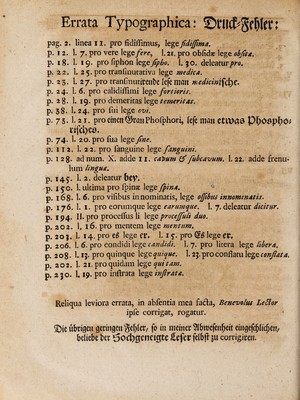 Errata Typographica: Druck-Fehler:
pag. 2. linea 11. pro fidissimus, lege fidissima.
p. 12. l. 7. pro vere lege fere. l. 21. pro obsidæ lege obsea.
p. 18. l. 19. pro siphon lege sipho. l. 30. deleatur pro.
p. 22. l. 25. pro transmutativa lege medica.
p. 23. l. 27. pro transmutirende lese man medicinische.
p. 24. l. 6. pro calidissimi lege fortioris.
p. 28. l. 19. pro demeritas lege temeritas.
p. 38. l. 24. pro sui lege ovi.
p. 73. l. 21. pro einen Gran Phosphori, lese man etwas Phospho-
rischeo.
p. 74. l. 20. pro sua lege sine.
p. 112. l. 22. pro sanguine lege sanguini.
p. 128. ad num. X. adde 11. cavum & subcavum. l. 22. adde frenu-
lum linguæ.
p. 145. l. 2. deleatur bey.
p. 150. l. ultima pro spinx lege spina.
p. 168. l. 6. pro visibus in nominatis, lege ossibus innominatis.
p. 176. l. 1. pro corumque lege earumque. l. 7. deleatur dicitur.
p. 194. ll. pro processus li lege processuli duo.
p. 202. l. 16. pro mentem lege mentum.
p. 203. l. 14. pro es lege er. l. 15. pro Es lege er.
p. 206. l. 6. pro condidi lege candidi. l. 7. pro litera lege libera.
p. 208. l. 13. pro quinque lege quique. l. 23. pro constanta lege constata.
p. 202. l. 21. pro quidam lege qui tam.
p. 230. l. 19. pro instrata lege instrata.
Reliqua leviora errata, in absentia mea facta, Benevolus Lector
ipse corrigat, rogatur.
Die übrigen geringen Fehler, so in meiner Abwesenheit eingeschlichen,
beliebe der Hochgeneigte Leser selbst zu corrigiren.